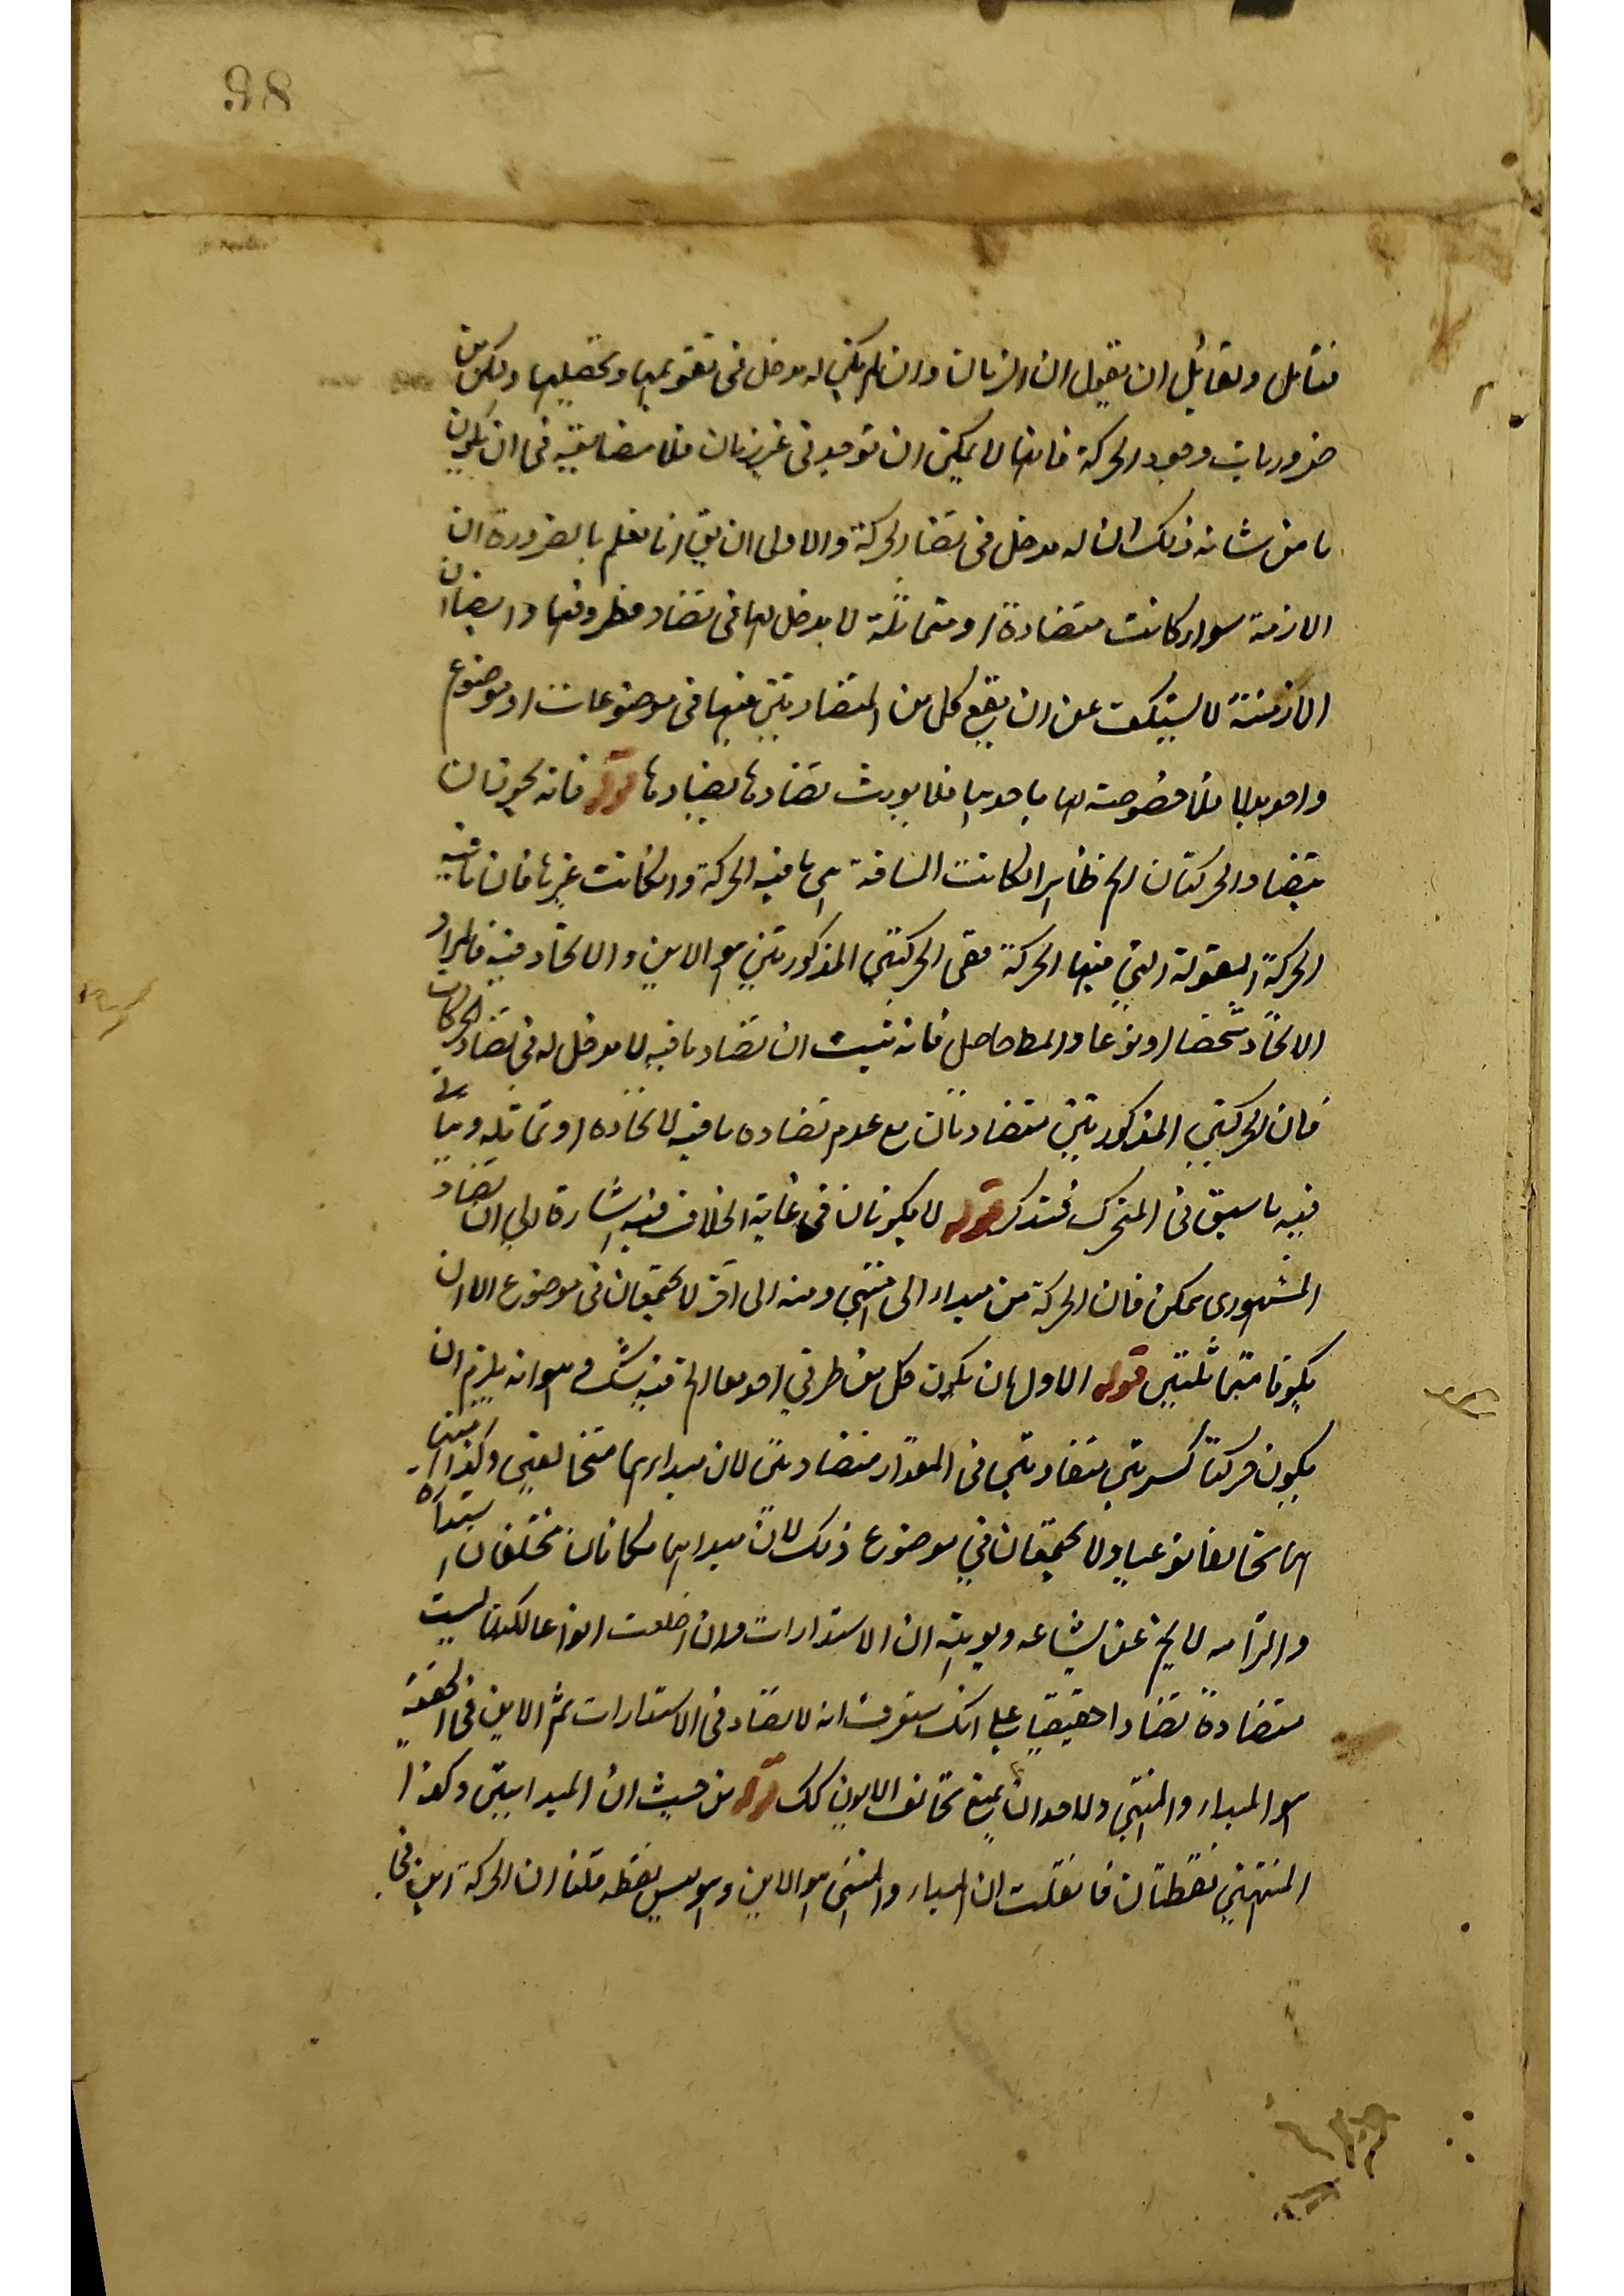 98
فتامل ولقائل ان يقول ان الزمان وان لم يكن له مدخل فى تقويمها وتحصيلها ولكن من
ضروريات وجود الحركة فانها لا يمكن ان توجد فى غير زمان فلا مضايقة فى ان يكون
ما من شانه ذلك ان له مدخل فى تضاد الحركة والاولى ان يق انا نعلم بالضرورة ان
الازمنة سواء كانت متضادة او متماثلة لا مدخل لها فى تضاد مظروفها وايضا ان
الازمنة لا يستنكف عن ان يقع كل من المتضادين فيها فى موضوعات او موضوع
واحد بدلا فلا خصوصية لها باحدهما فلا يورث تضادها تضادها قوله فانه يجوز ان
يتضاد الحركتان الخ ظاهر ان كانت المسافة هى ما فيه الحركة وان كانت غيرها فان ما فيه
الحركة المقولة التى فيها الحركة ففى الحركتين المذكورتين هو الاين والاتحاد فيه فالمراد
الاتحاد شخصا او نوعا والمط حاصل فانه يثبت ان تضاد ما فيه لا مدخل له فى تضاد الحركات
فان الحركتين المذكورتين متضادتان مع عدم تضاده ما فيه لاتحاده او تماثله وياتى
فيه ما سبق فى المتحرك فتذكر قوله لا يكونان فى غاية الخلاف فيه اشارة الى ان التضاد
المشهورى ممكن فان الحركة من مبداء الى منتهى ومنه الى اخر لا يجتمعان فى موضوع الا ان
يكونا متماثلين قوله الاول ان يكون كل من طرفي احدهما الخ فيه شك وهو انه يلزم ان
يكون حركتا كسرتين متفاوتين فى المقدار متضادتين لان مبداهما متخالفين وكذا منتهاهما
تخالفا نوعيا ولا يجتمعان في موضوع ذلك لان مبداهما مكانان مختلفان استدارة
والتزامه لا يخ عن بشاعه وجوابه ان الاستدارات وان اختلفت انواعا لكنها ليست
متضادة تضادا حقيقيا على انك ستعرف ان لا تضاد فى الاستدارات ثم الاين فى الحقيقة
هو المبداء والمنتهى ولاحد ان يمنع تخالف الاين كك قوله من حيث ان المبدايين وكذا
المنتهيين نقطتان فان قلت ان المبداء والمنتهى هو الاين وهو ليس نقطه قلنا ان الحركة اين فى